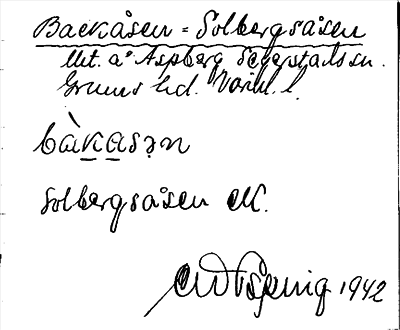 Backåsen = Solbergsåsen
Utt. å Aspberg Segerstads sn.
Grums hd. Värml. l.
bàkasən
Solbergsåsen
1942